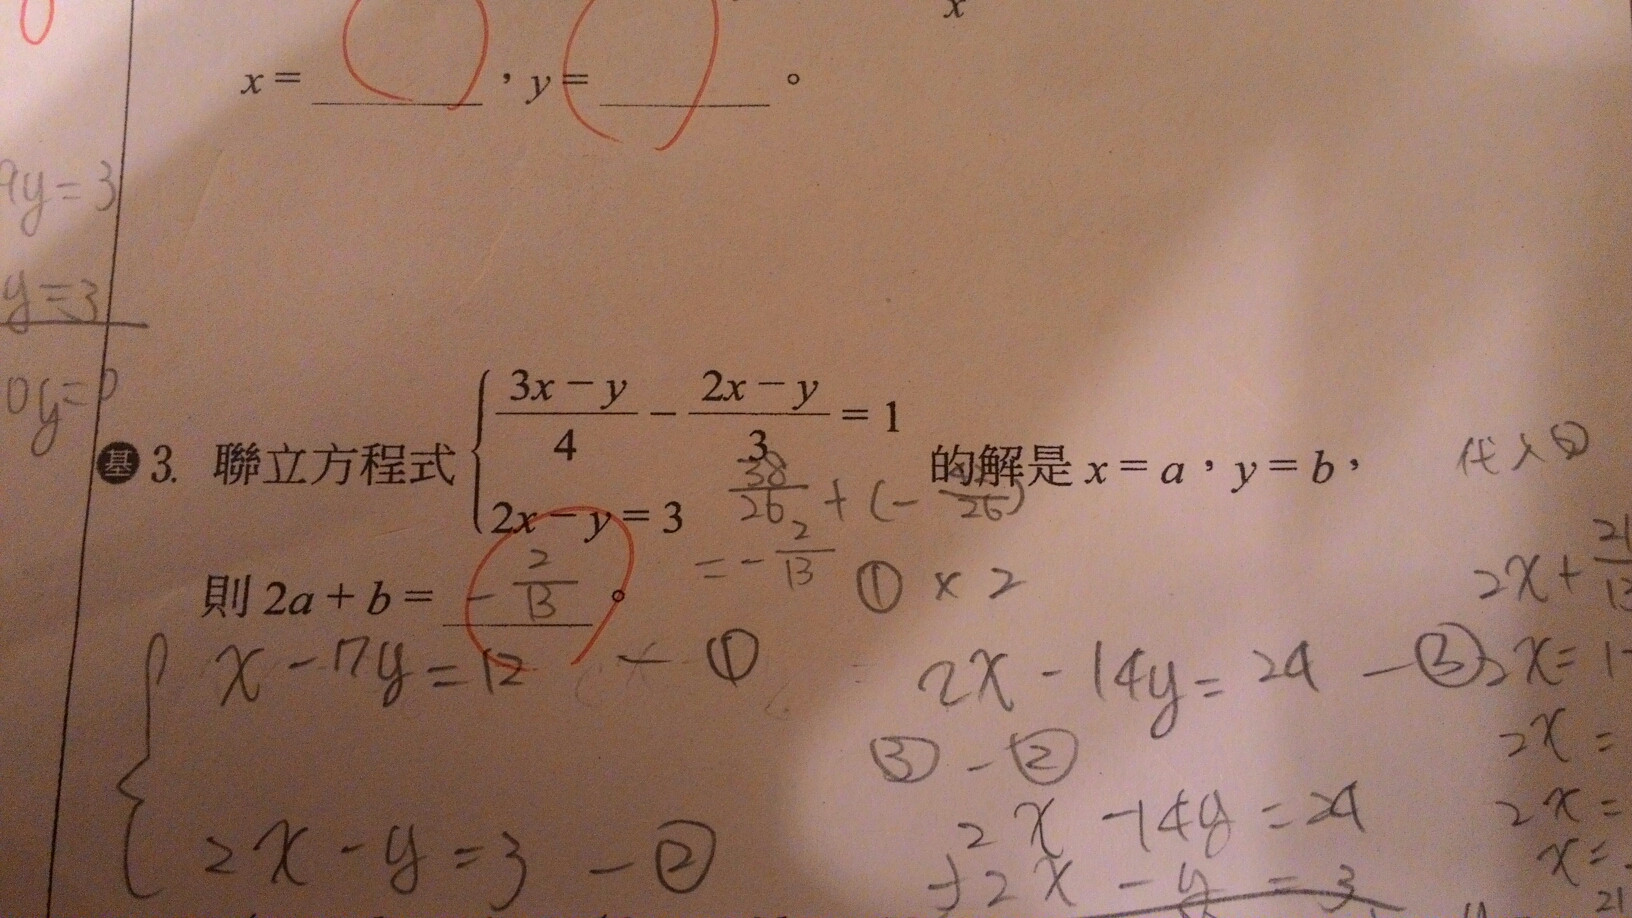 x
x = ，y = 。
9y=3
y=3
0y=0
基 3. 聯立方程式 { (3x − y)/4 − (2x − y)/3 = 1
2x − y = 3 的解是 x = a，y = b，
38/26 + (−  /26)
= − 2/13
則 2a + b = − 2/13 。
x − 7y = 12 − ①
2x − y = 3 − ②
① × 2
2x − 14y = 24 − ③
③ − ②
2x − 14y = 24
2x − y = 3
代入②
2x + 21/13
2x = 1
2x =
2x =
x =
21